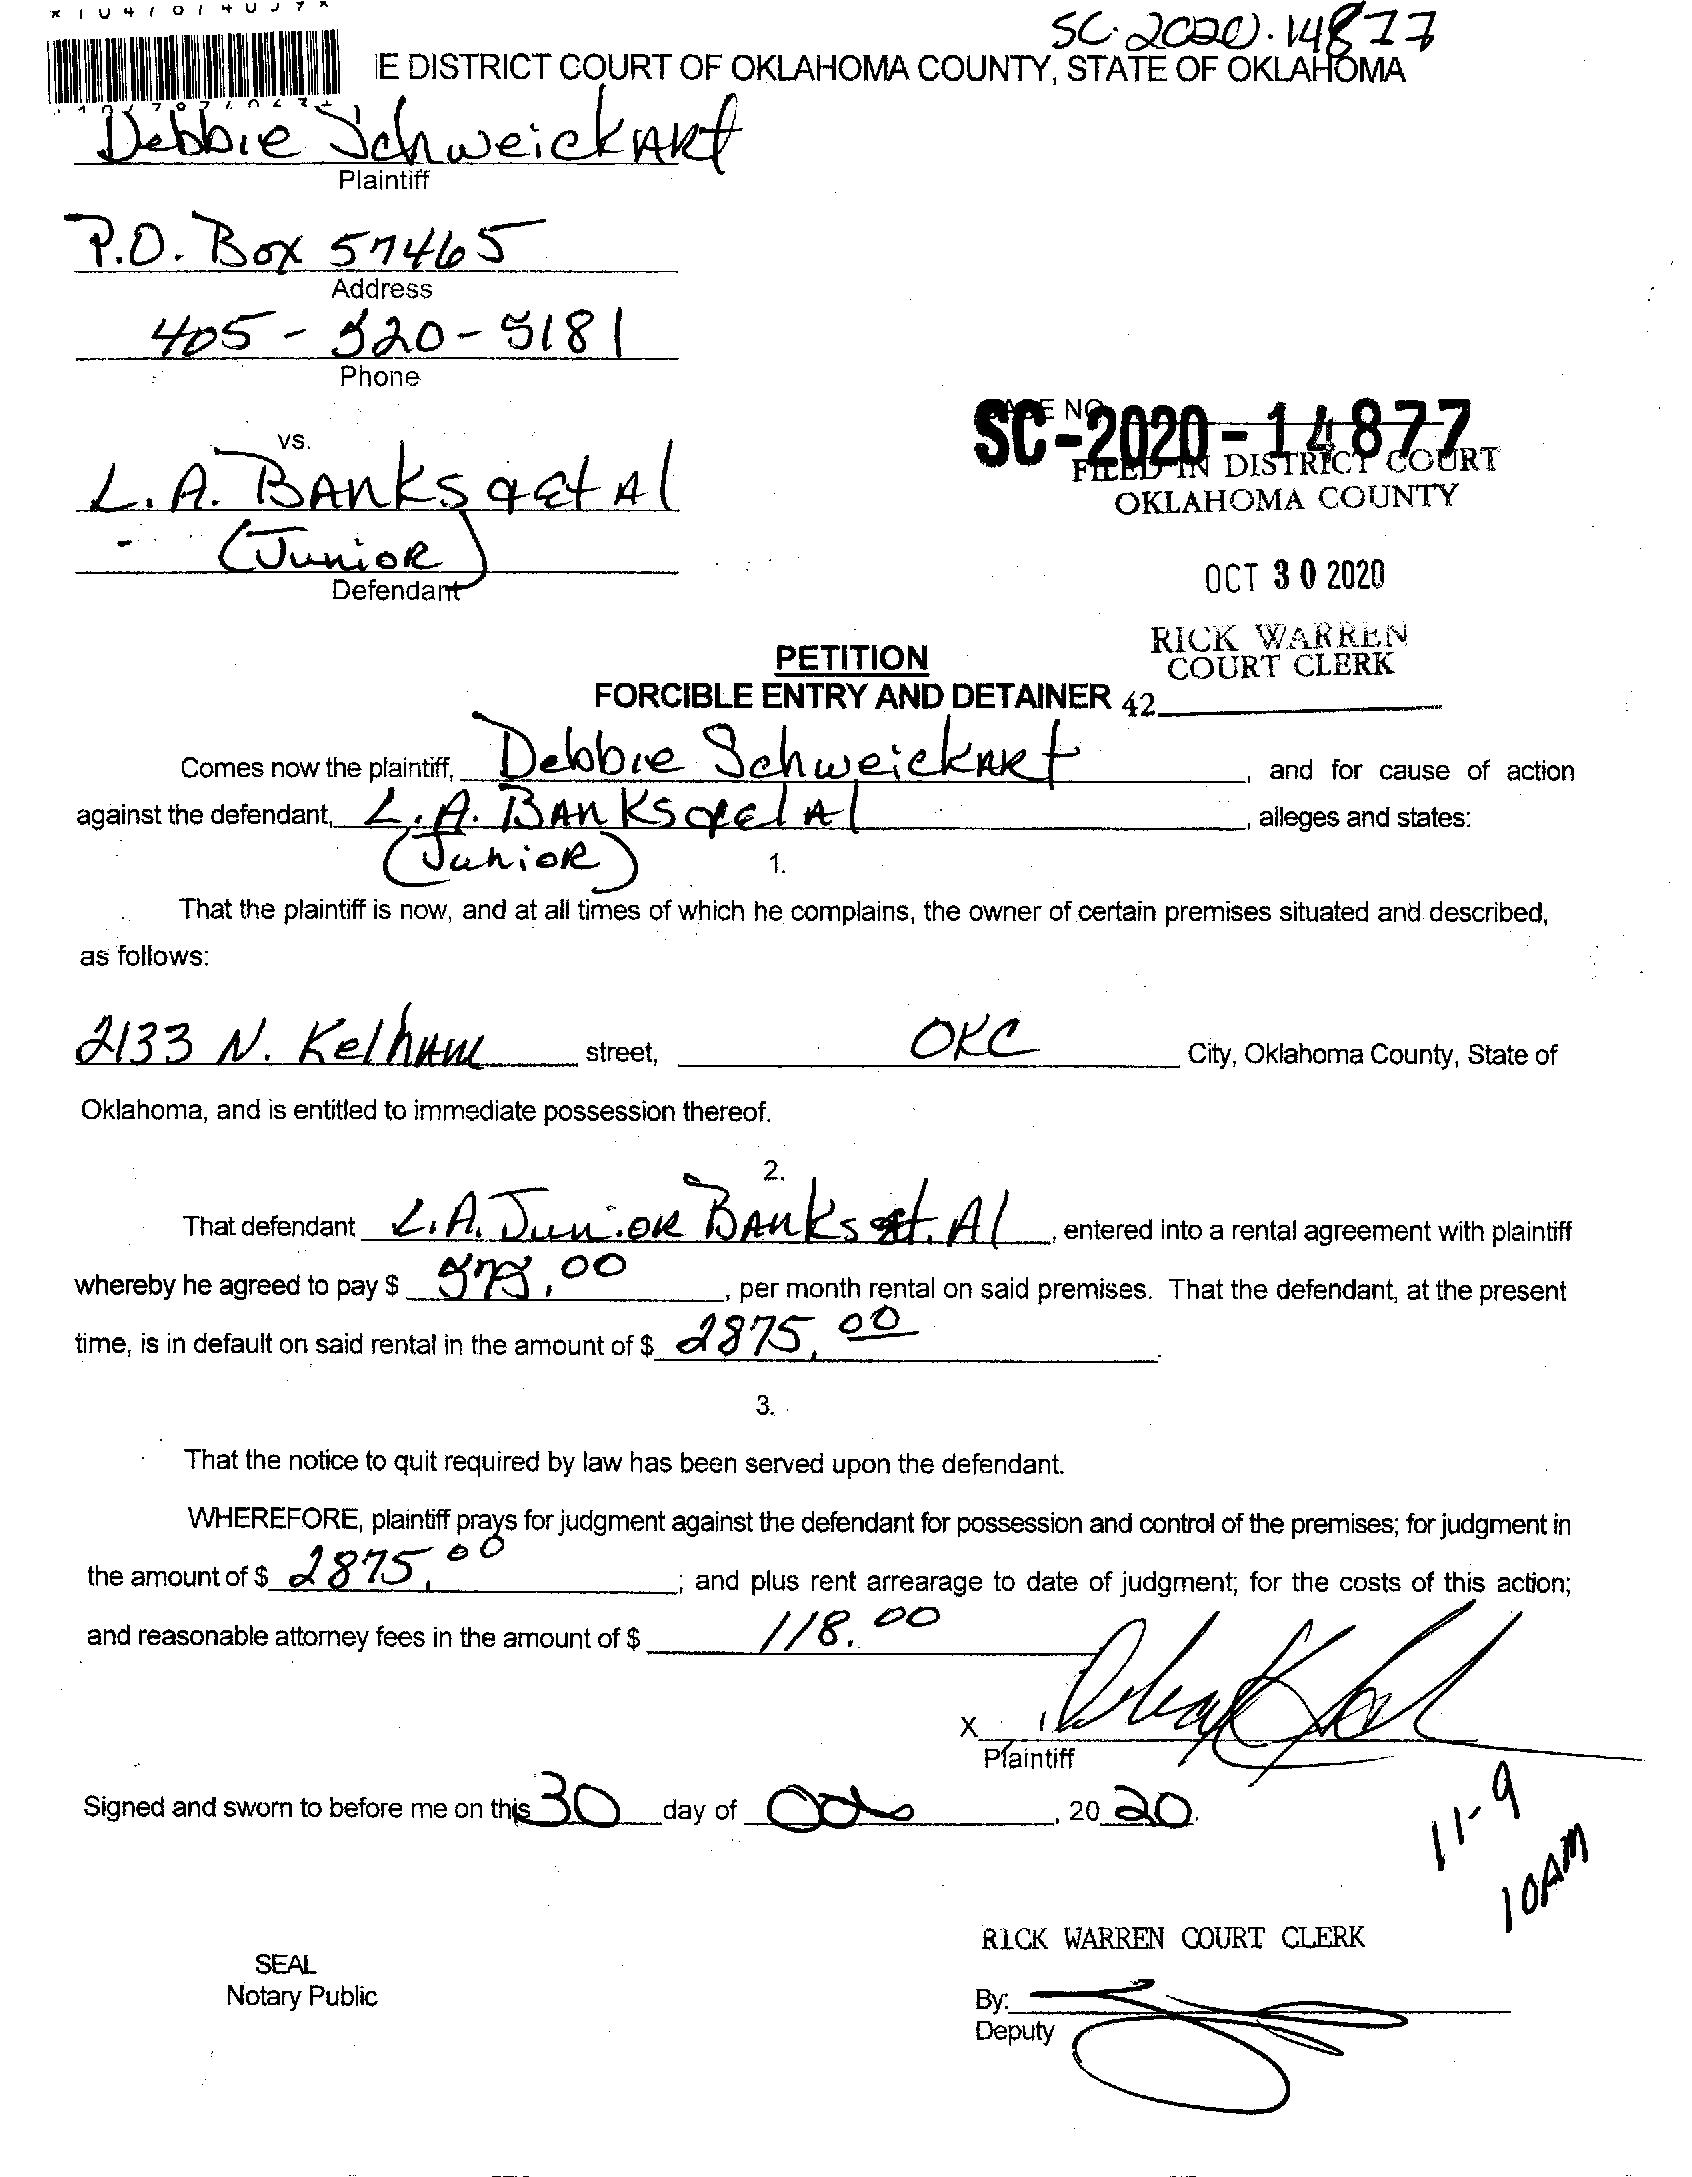 SC-2020-14877
E DISTRICT COURT OF OKLAHOMA COUNTY, STATE OF OKLAHOMA
Debbie Schweickart
Plaintiff
P.O. Box 57465
Address
405-520-5181
Phone
vs.
SC-2020-14877
FILED IN DISTRICT COURT
OKLAHOMA COUNTY
L.A. Banks et Al
(Junior)
Defendant
OCT 30 2020
RICK WARREN
COURT CLERK
PETITION
FORCIBLE ENTRY AND DETAINER 42
Comes now the plaintiff, Debbie Schweickart, and for cause of action
against the defendant, L.A. Banks et Al, alleges and states:
(Junior)
1.
That the plaintiff is now, and at all times of which he complains, the owner of certain premises situated and described,
as follows:
2133 N. Kelham street, OKC City, Oklahoma County, State of
Oklahoma, and is entitled to immediate possession thereof.
2.
That defendant L.A. Junior Banks et. Al, entered into a rental agreement with plaintiff
whereby he agreed to pay $ .00, per month rental on said premises. That the defendant, at the present
time, is in default on said rental in the amount of $ 2875.00.
3.
That the notice to quit required by law has been served upon the defendant.
WHEREFORE, plaintiff prays for judgment against the defendant for possession and control of the premises; for judgment in
the amount of $ 2875.00; and plus rent arrearage to date of judgment; for the costs of this action;
and reasonable attorney fees in the amount of $ 118.00
X
Plaintiff
Signed and sworn to before me on this 30 day of Oct, 2020.
11-9
10AM
RICK WARREN COURT CLERK
SEAL
Notary Public
By:
Deputy